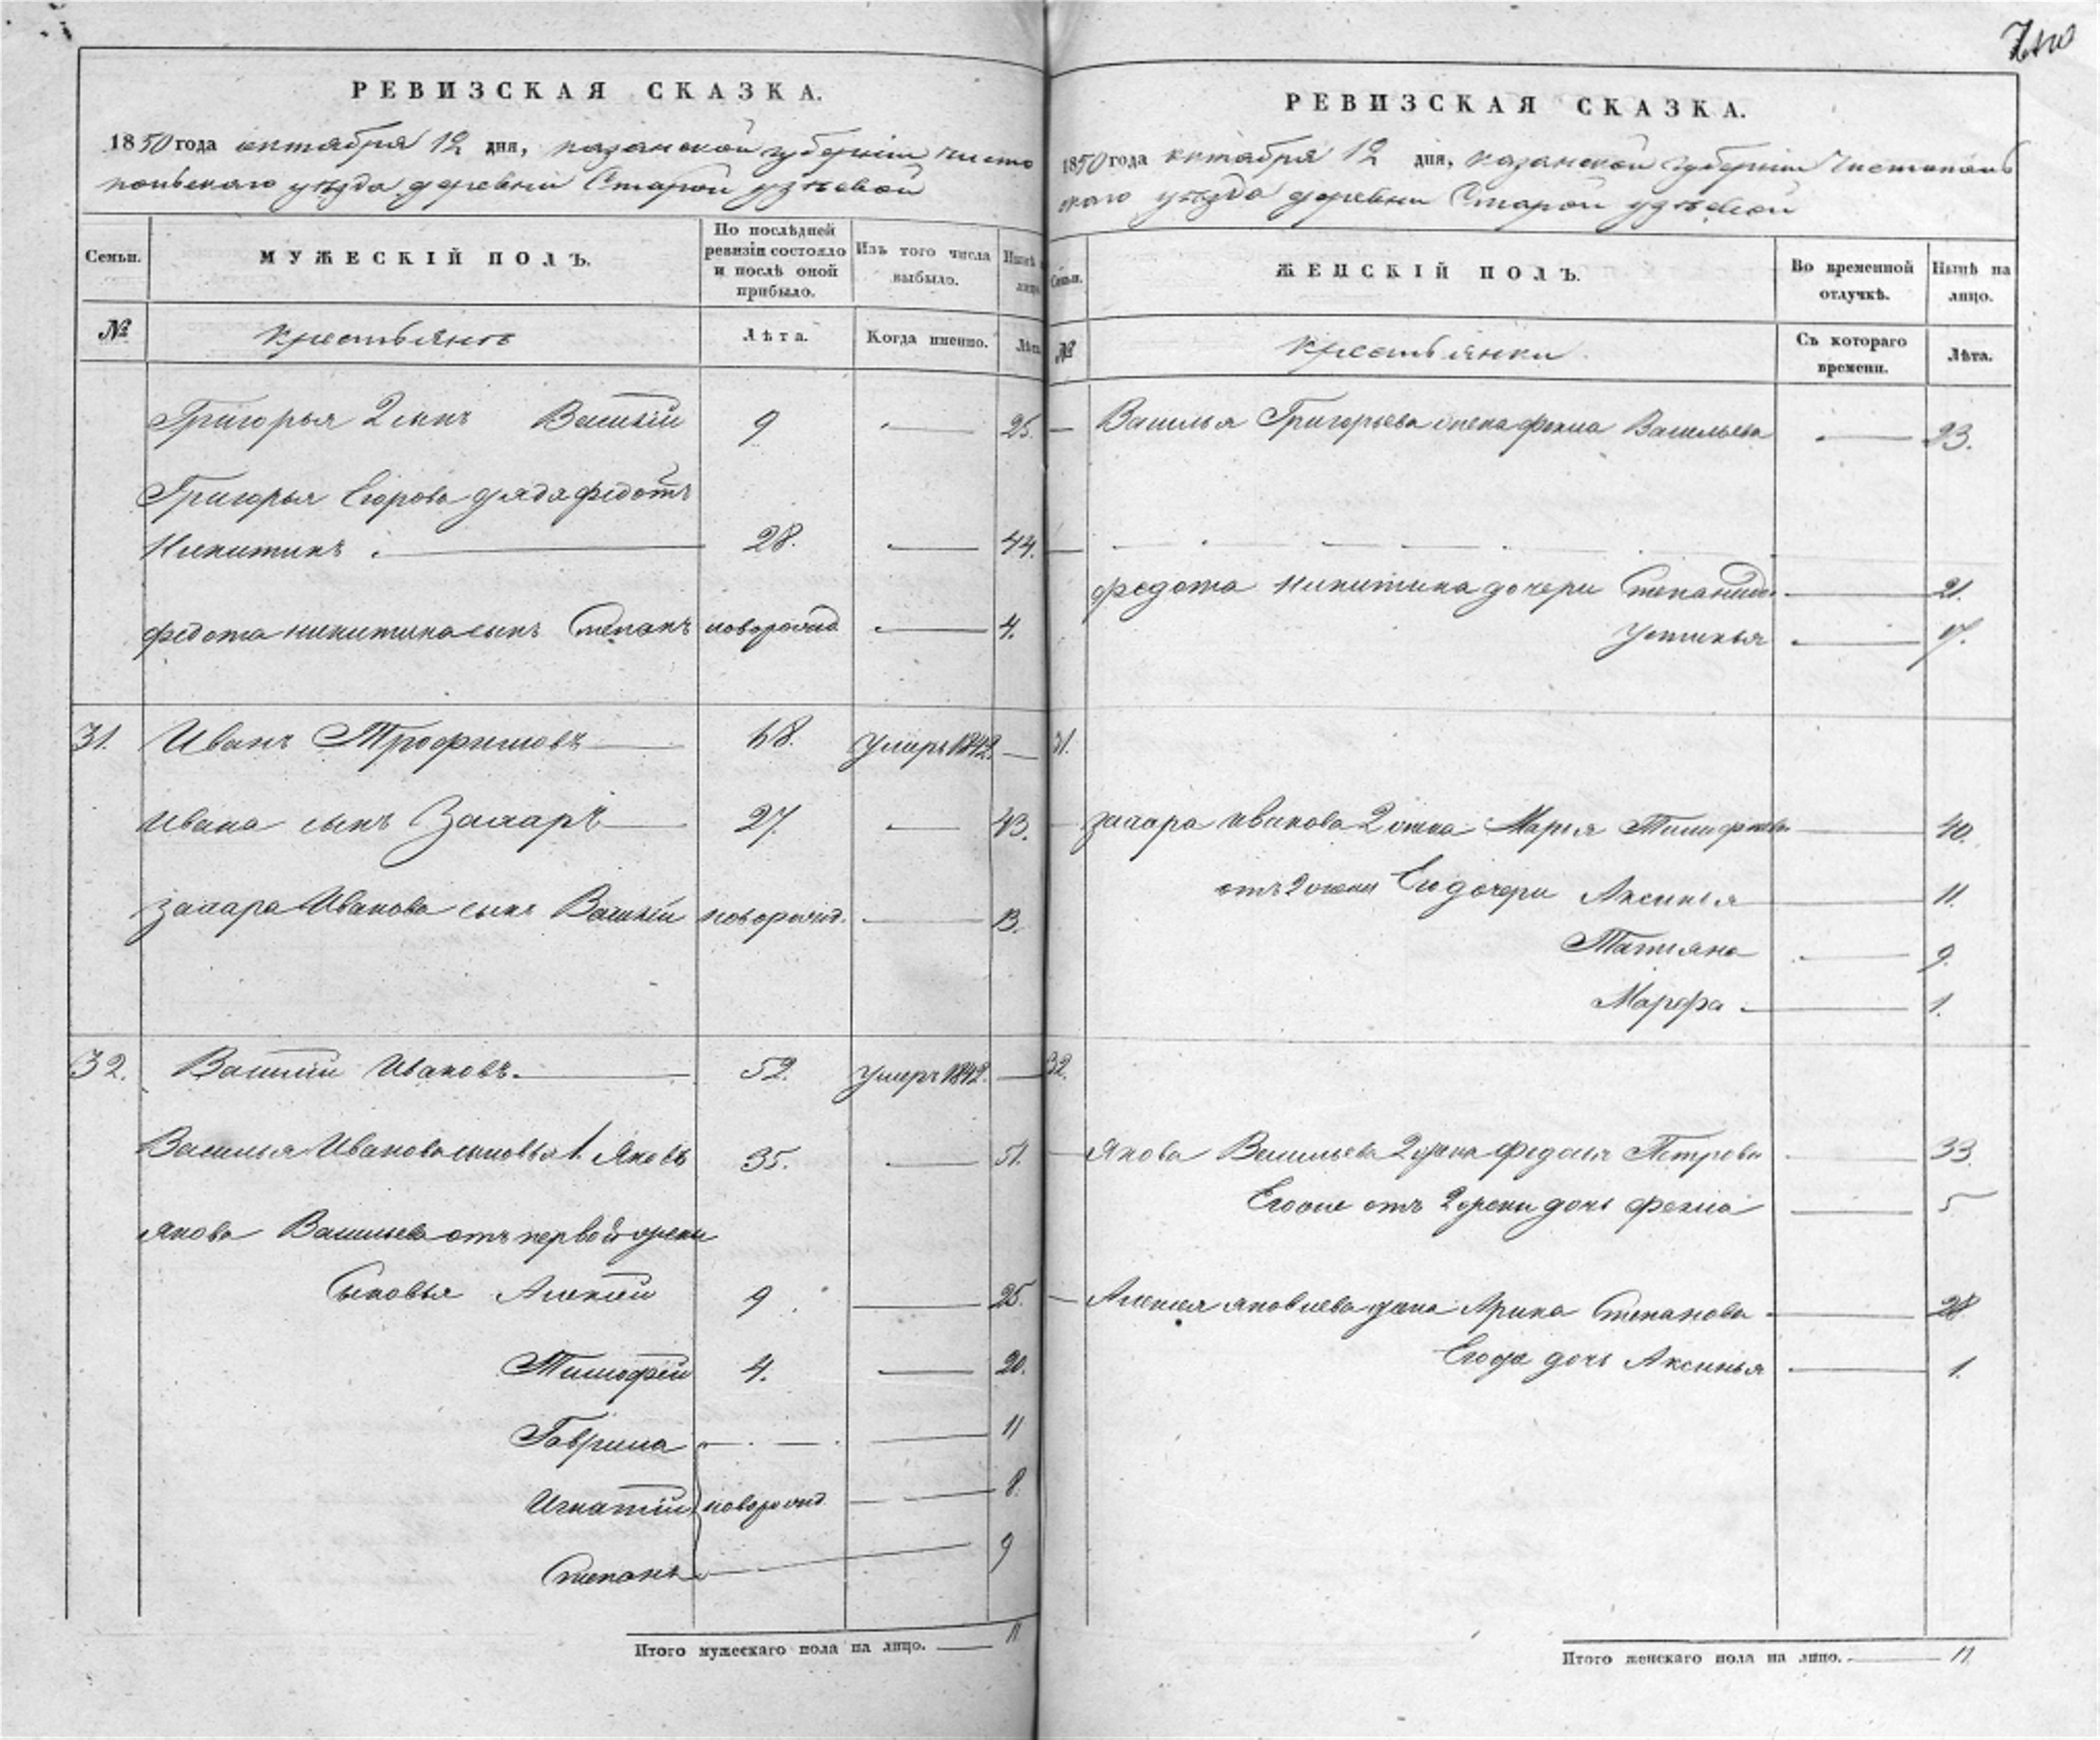 РЕВИЗСКАЯ СКАЗКА.
1850 года октября 12 дня, казанской губернiи чисто
польскаго уѣзда деревни Старой узѣевой
Семьи.
МУЖЕСКІЙ ПОЛЪ.
По послѣдней ревизіи состояло и послѣ оной прибыло.
Изъ того числа выбыло.
Нынѣ на лицо.
№
крестьянъ
Лѣта.
Когда именно.
Лѣта.
Григорья 2 сынъ Василiй 9 25.
Григорья Егорова дядя федотъ
Никитинъ 28. 44.
федота никитина сынъ Степанъ новорожд 4.
31. Иванъ Трофимовъ 68. умеръ 1842.
Ивана сынъ Захаръ 27. 43.
захара Иванова сынъ Василiй новорожд. 13.
32. Василiй Ивановъ. 52. умеръ 1842.
Василья Иванова сыновья 1. Яковъ 35. 51.
якова Васильева отъ первой жены
Сыновья Алексѣй 9 25.
Тимофѣй 4. 20.
Гаврила 11
Игнатiй новорожд. 8.
Степанъ 9
Итого мужескаго пола на лицо. 11
РЕВИЗСКАЯ СКАЗКА.
1850 года октября 12 дня, казанской губернiи Чистополь
скаго уѣзда деревни Старой узѣевой
Семьи.
ЖЕНСКІЙ ПОЛЪ.
Во временной отлучкѣ.
Нынѣ на лицо.
№
крестьянки
Съ котораго времени.
Лѣта.
Василья Григорьева жена фекла Васильева 23.
федота никитина дочери Степанида 21.
устинья 17.
31.
захара иванова 2 жена Марья Тимофѣева 40.
отъ 2 жены Его дочери Аксинья 11.
Татьяна 9.
Марфа 1.
32.
якова Васильева 2 жена федосья Петрова 33.
Егоже отъ 2 жены дочь фекла 5
Алексѣя яковлева жена Арина Степанова 28
Егоже дочь Аксинья 1.
Итого женскаго пола на лицо. 11